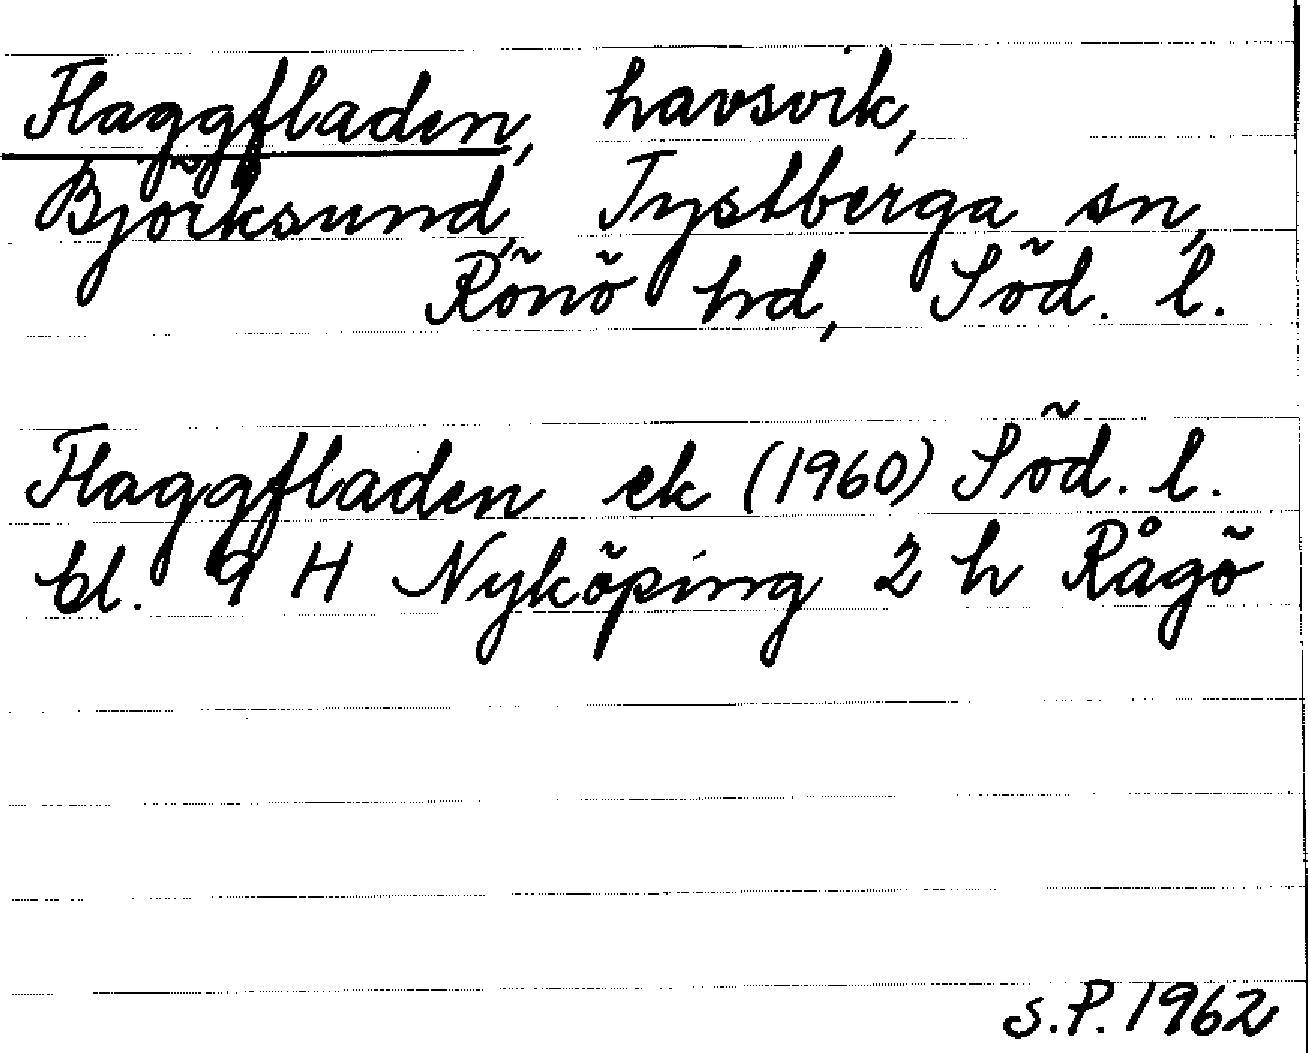 Flaggfladen, havsvik,
Björksund, Tystberga sn,
Rönö hd, Söd. l.
Flaggfladen ek (1960) Söd. l.
bl. 9 H Nyköping 2 h Rågö
S.P. 1962